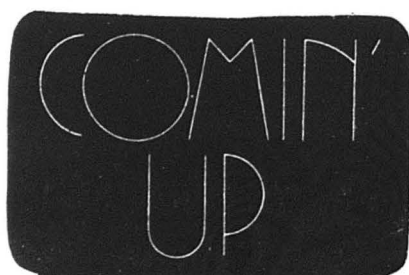 COMIN'
UP